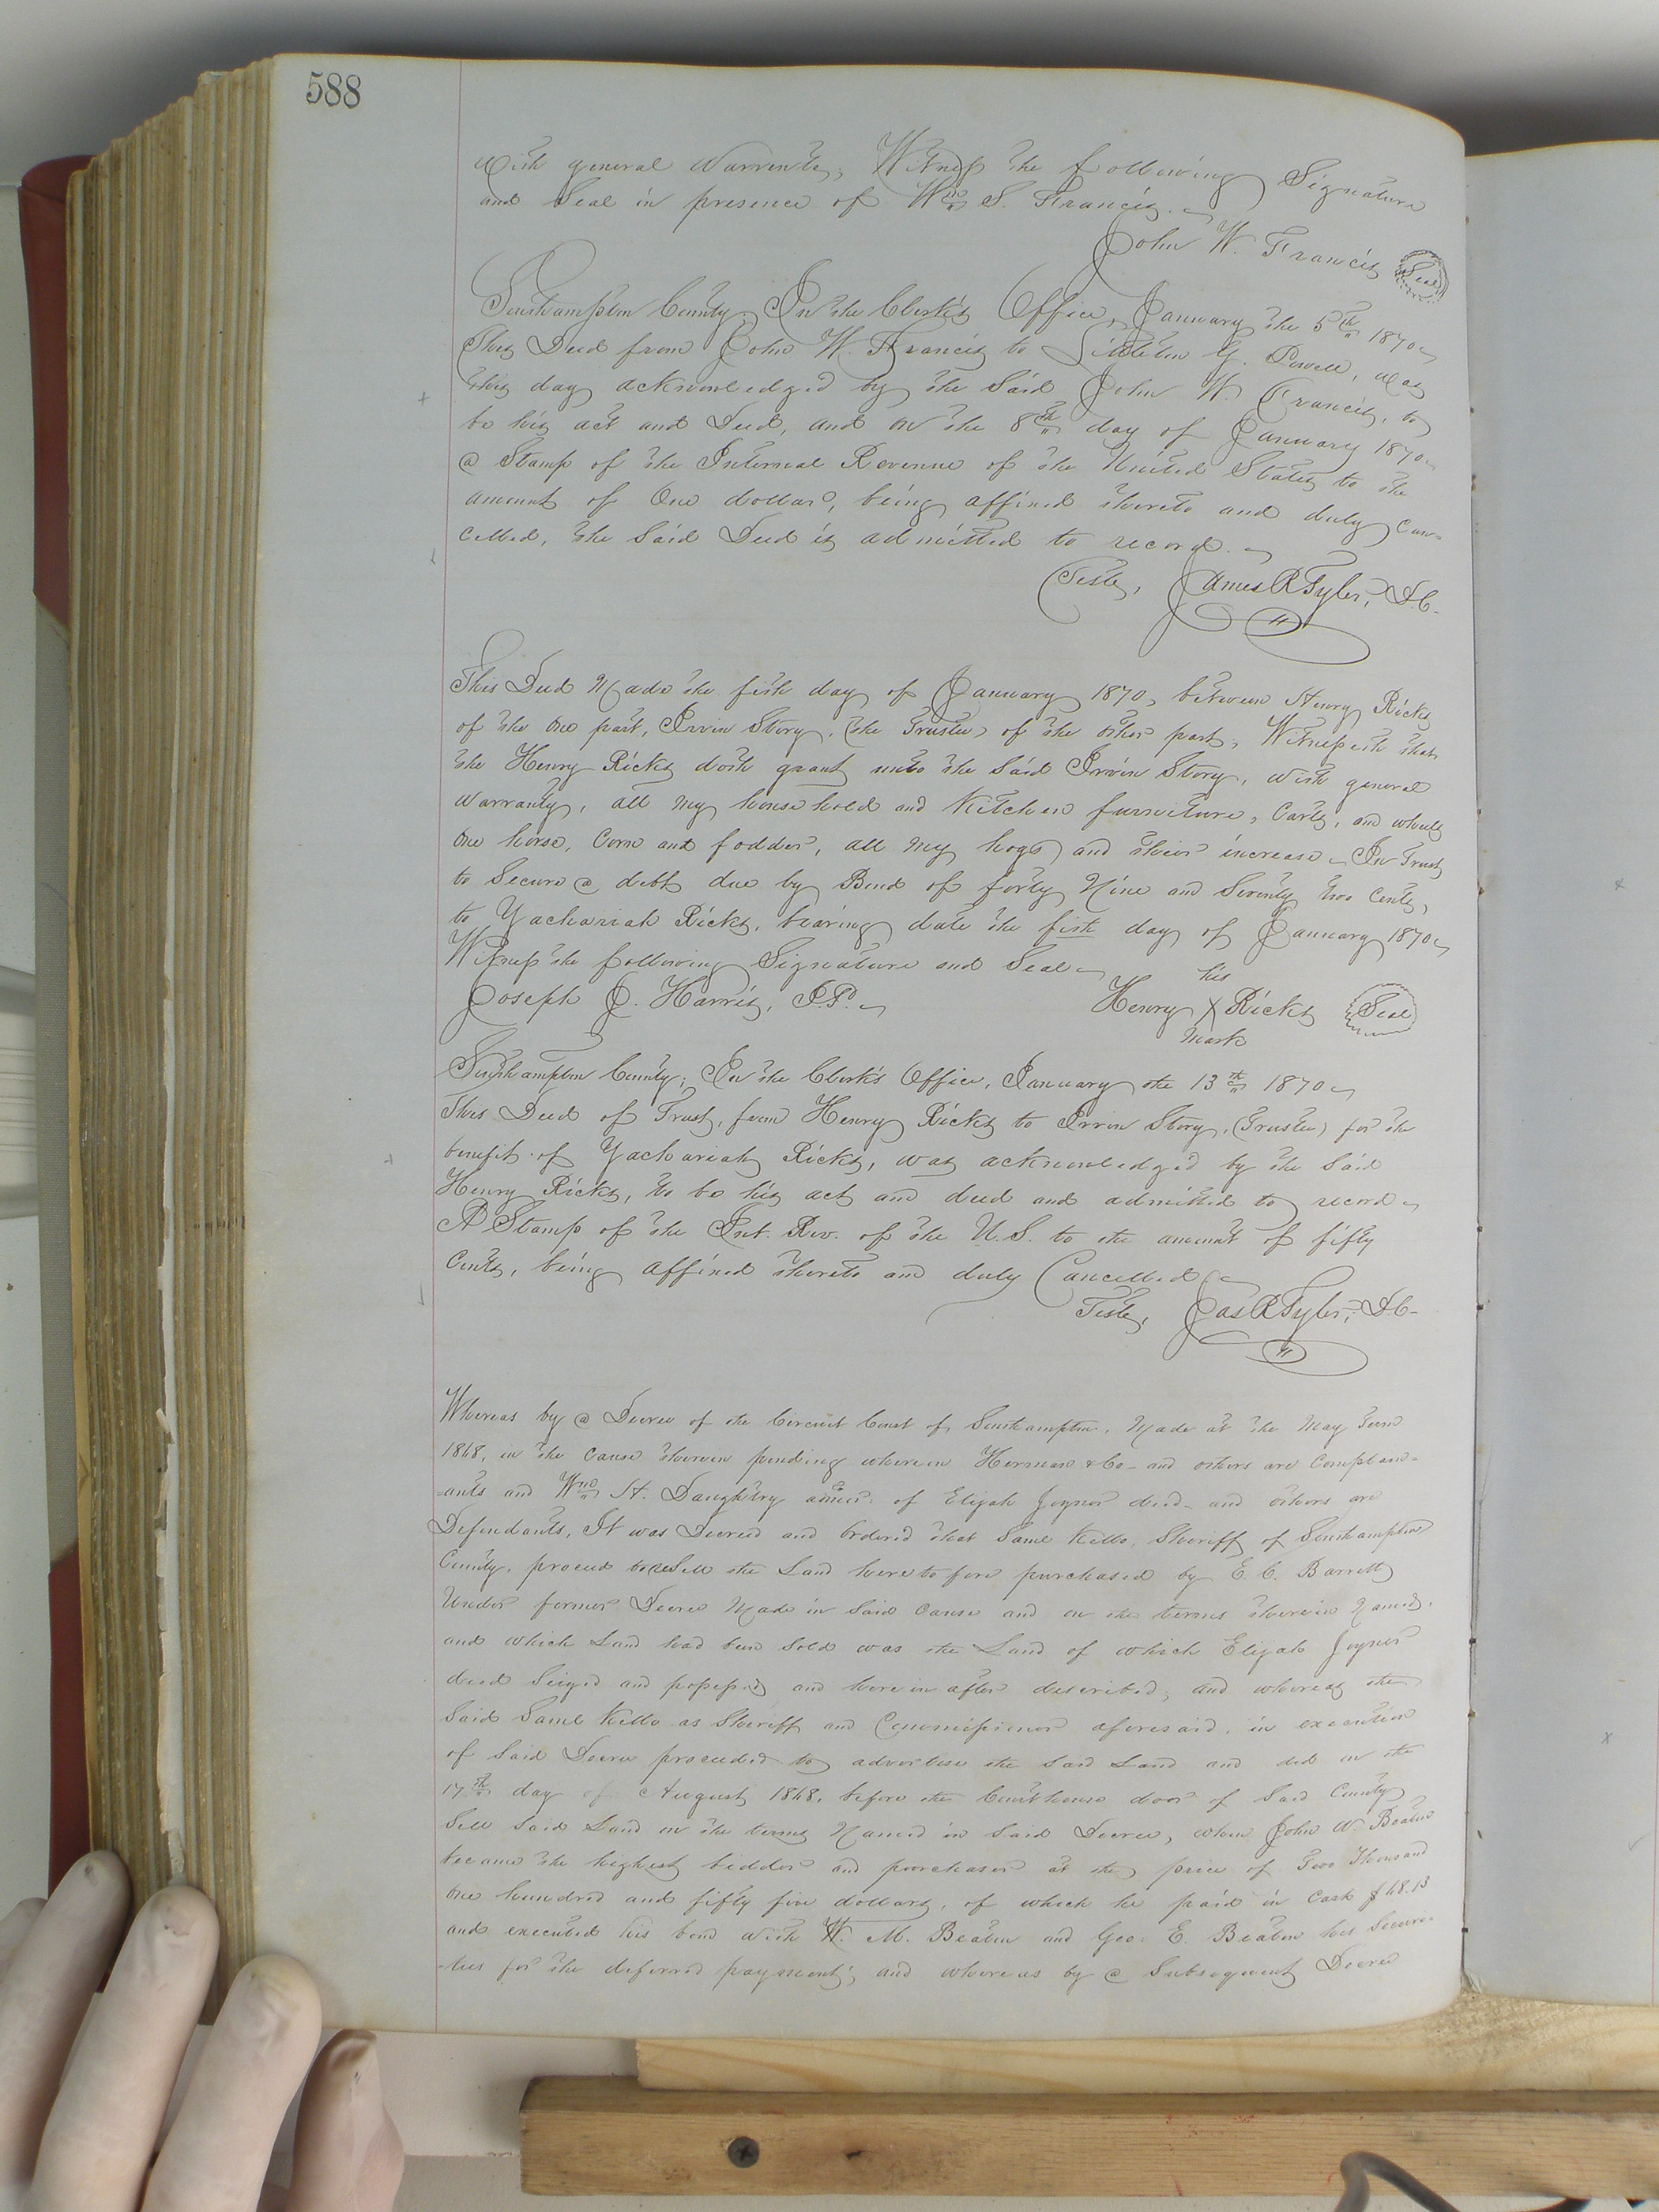 588
with general Warrenty, Witness the following Signature
and Seal in presence of Wm S. Francis.
John W. Francis Seal
Southampton County; In the Clerk's Office, January the 5th 1870
This Deed from John W. Francis to Littleton G. Powell, was
this day acknowledged by the said John W. Francis, to
be his act and Deed, and on the 8th day of January 1870
a Stamp of the Internal Revenue of the United States to the
amount of One dollar, being affixed thereto and duly can=
celled, the said Deed is admitted to record.
Teste, James R Tyler, D.C.
This Deed Made the fisth day of January 1870, between Henry Ricks
of the one part, Irvin Story, (the Trustee) of the other part, Witnesseth that
the Henry Ricks doth grant unto the said Irvin Story, with general
Warranty, all my household and Kitchen furniture, Carts, and wheels
one horse, Corn and fodder, all my hogs and their increase In Trust
to Secure a debt due by Bond of forty Nine and Seventy two Cents,
to Zachariah Ricks, bearing date the fisth day of January 1870
Witness the following Signature and Seal
his
Joseph J. Harris, J.P. Henry X Ricks Seal
mark
Southampton County; In the Clerk's Office, January the 13th 1870
This Deed of Trust, from Henry Ricks to Irvin Story, (Trustee) for the
benefit of Zachariah Ricks, was acknowledged by the said
Henry Ricks, to be his act and deed and admitted to record
A Stamp of the Int. Rev. of the U.S. to the amount of fifty
Cents, being affixed thereto and duly Cancelled
Teste, Jas R Tyler, D.C.
Whereas by a Decree of the Circuit Court of Southampton, Made at the May Term
1868, in the Cause therein pending wherein Herman & Co and others are Complain=
=ants and Wm H. Daughtry admr. of Elijah Joyner decd and others are
Defendants, It was Decreed and Ordered that Saml Kello, Sheriff of Southampton
County, proceed to resell the Land heretofore purchased by E. C. Barrett
Under former Decree Made in said Cause and on the terms therein Named,
and which Land had been Sold was the Land of which Elijah Joyner
decd Seized and possessed and herein after described, and whereas the
Said Saml Kello as Sheriff and Commissioner aforesaid, in execution
of Said Decree proceeded to advertise the said Land and did on the
17th day of August 1868, before the Courthouse door of Said County
Sell Said Land on the terms Named in Said Decree, when John W. Beaton
became the highest bidder and purchaser at the price of Two Thousand
One hundred and fifty five dollars, of which he paid in Cash $68.13
and executed his bond with W. M. Beaton and Geo. E. Beaton his Securi=
=ties for the deferred payment; and whereas by a Subsequent Decree